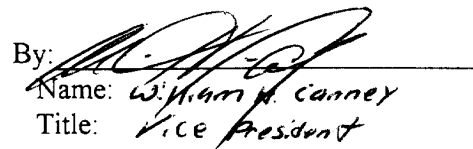 By:
Name: William H. Canney
Title: Vice President